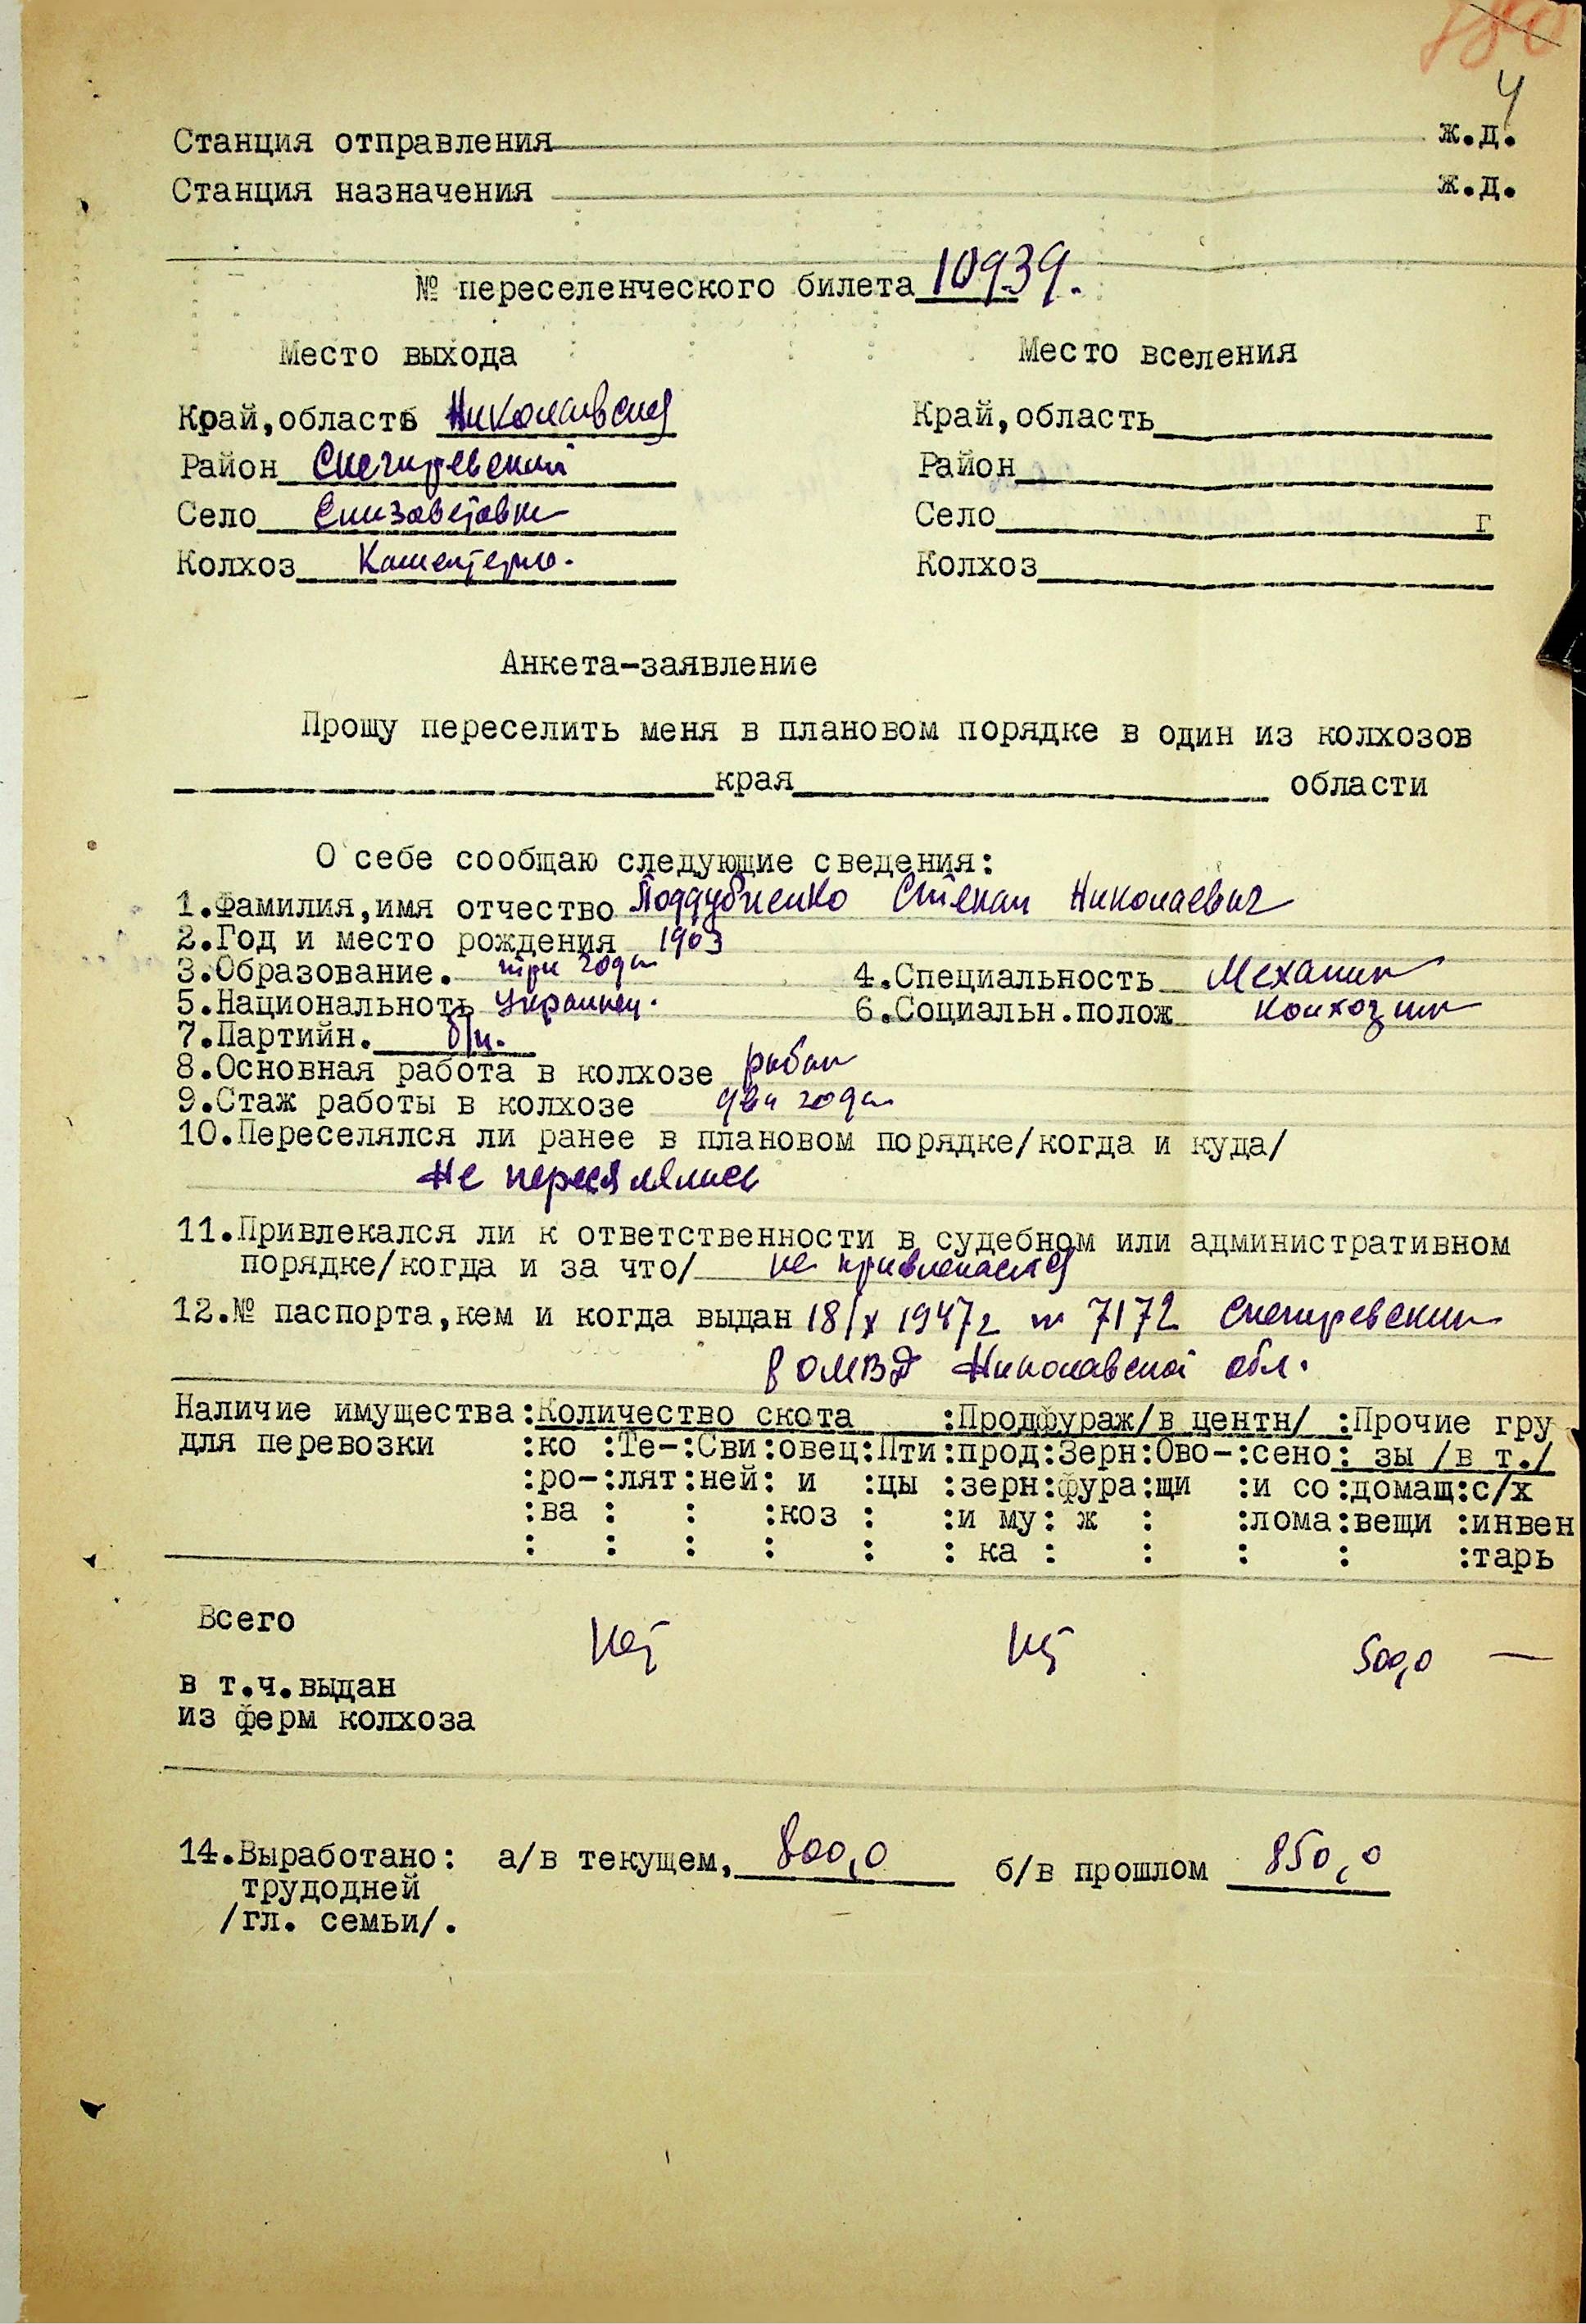 180
4
Станция отправления ж.д.
Станция назначения ж.д.
№ переселенческого билета 10939.
Место выхода Место вселения
Край,область Николаевская Край,область
Район Снегиревский Район
Село Елизаветовка Село г
Колхоз Коминтерна. Колхоз
Анкета-заявление
Прошу переселить меня в плановом порядке в один из колхозов
края области
О себе сообщаю следующие сведения:
1.Фамилия,имя отчество Поддубненко Степан Николаевич
2.Год и место рождения 1903
3.Образование. три года 4.Специальность Механик
5.Национальноть Украинец. 6.Социальн.полож колхозник
7.Партийн. б/п.
8.Основная работа в колхозе рыбак
9.Стаж работы в колхозе два года
10.Переселялся ли ранее в плановом порядке/когда и куда/
Не переселялись
11.Привлекался ли к ответственности в судебном или административном
порядке/когда и за что/ не привлекался
12.№ паспорта,кем и когда выдан 18/X 1947г № 7172 Снегиревским
РОМВД Николавской обл.
Наличие имущества:Количество скота :Продфураж/в центн/ :Прочие гру
для перевозки :ко :Те-:Сви:овец:Пти:прод:Зерн:Ово-:сено: зы /в т./
:ро-:лят:ней: и :цы :зерн:фура:щи :и со:домащ:с/х
:ва : : :коз : :и му: ж : :лома:вещи :инвен
: : : : : : ка : : : : :тарь
Всего Нет Нет 500,0 —
в т.ч.выдан
из ферм колхоза
14.Выработано: а/в текущем, 800,0 б/в прошлом 850,0
трудодней
/гл. семьи/.